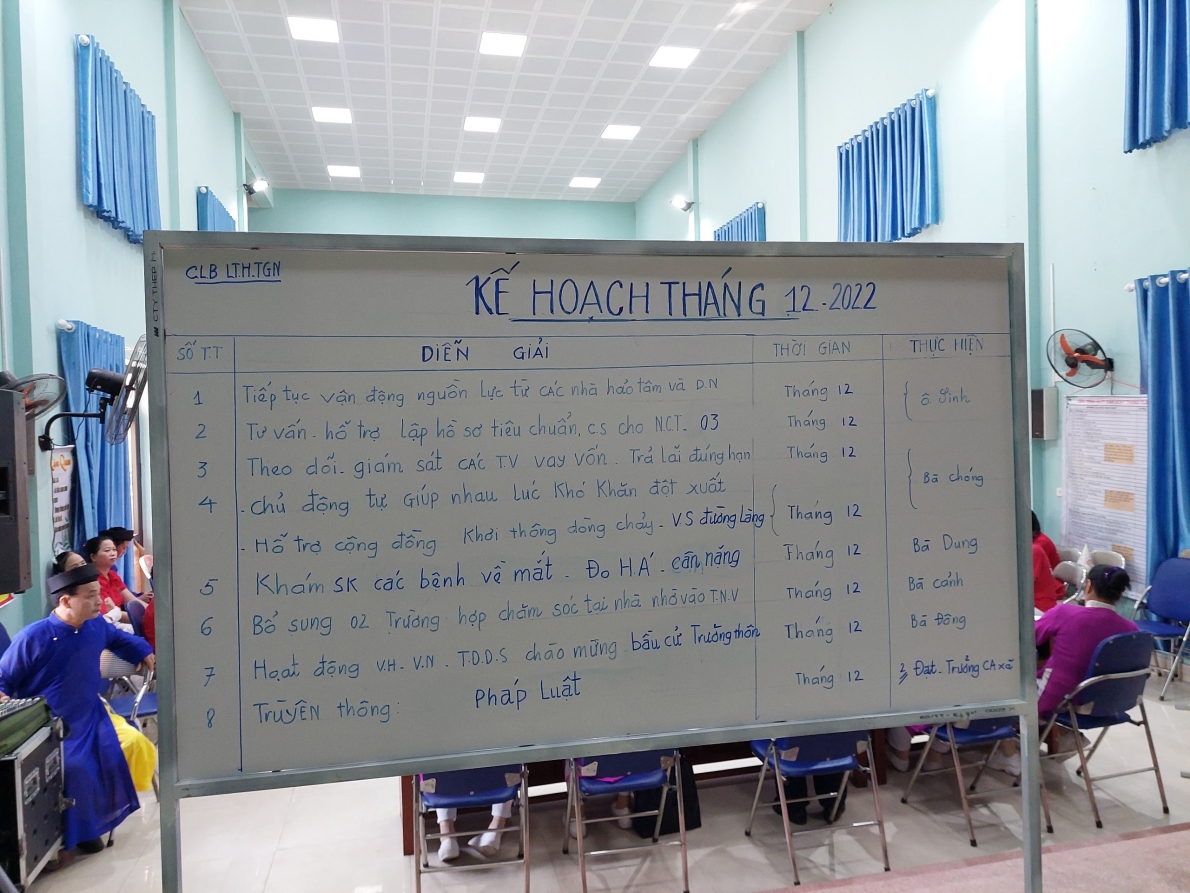 CLB LT.H.TGN
KẾ HOẠCH THÁNG 12-2022
SỐ T.T DIỄN GIẢI THỜI GIAN THỰC HIỆN
1 Tiếp tục vận động nguồn lực từ các nhà hảo tâm và D.N Tháng 12 Ô. Sinh
2 Tư vấn - hỗ trợ lập hồ sơ tiêu chuẩn, C.S cho N.CT - 03 Tháng 12
3 Theo dõi - giám sát các TV vay vốn. Trả lãi đúng hạn Tháng 12
4 - Chủ động tự giúp nhau lúc khó khăn đột xuất Bà chóng
- Hỗ trợ cộng đồng khơi thông dòng chảy - V.S đường làng Tháng 12
5 Khám SK các bệnh về mắt - Đo H.Á - cân nặng Tháng 12 Bà Dung
6 Bổ sung 02 Trường hợp chăm sóc tại nhà nhờ vào T.N.V Tháng 12 Bà cảnh
7 Hoạt động V.H - V.N - T.D.D.S chào mừng bầu cử Trưởng thôn Tháng 12 Bà Đông
8 Truyền thông: Pháp Luật Tháng 12 Đạt - Trưởng CA xã
CTY THÉP